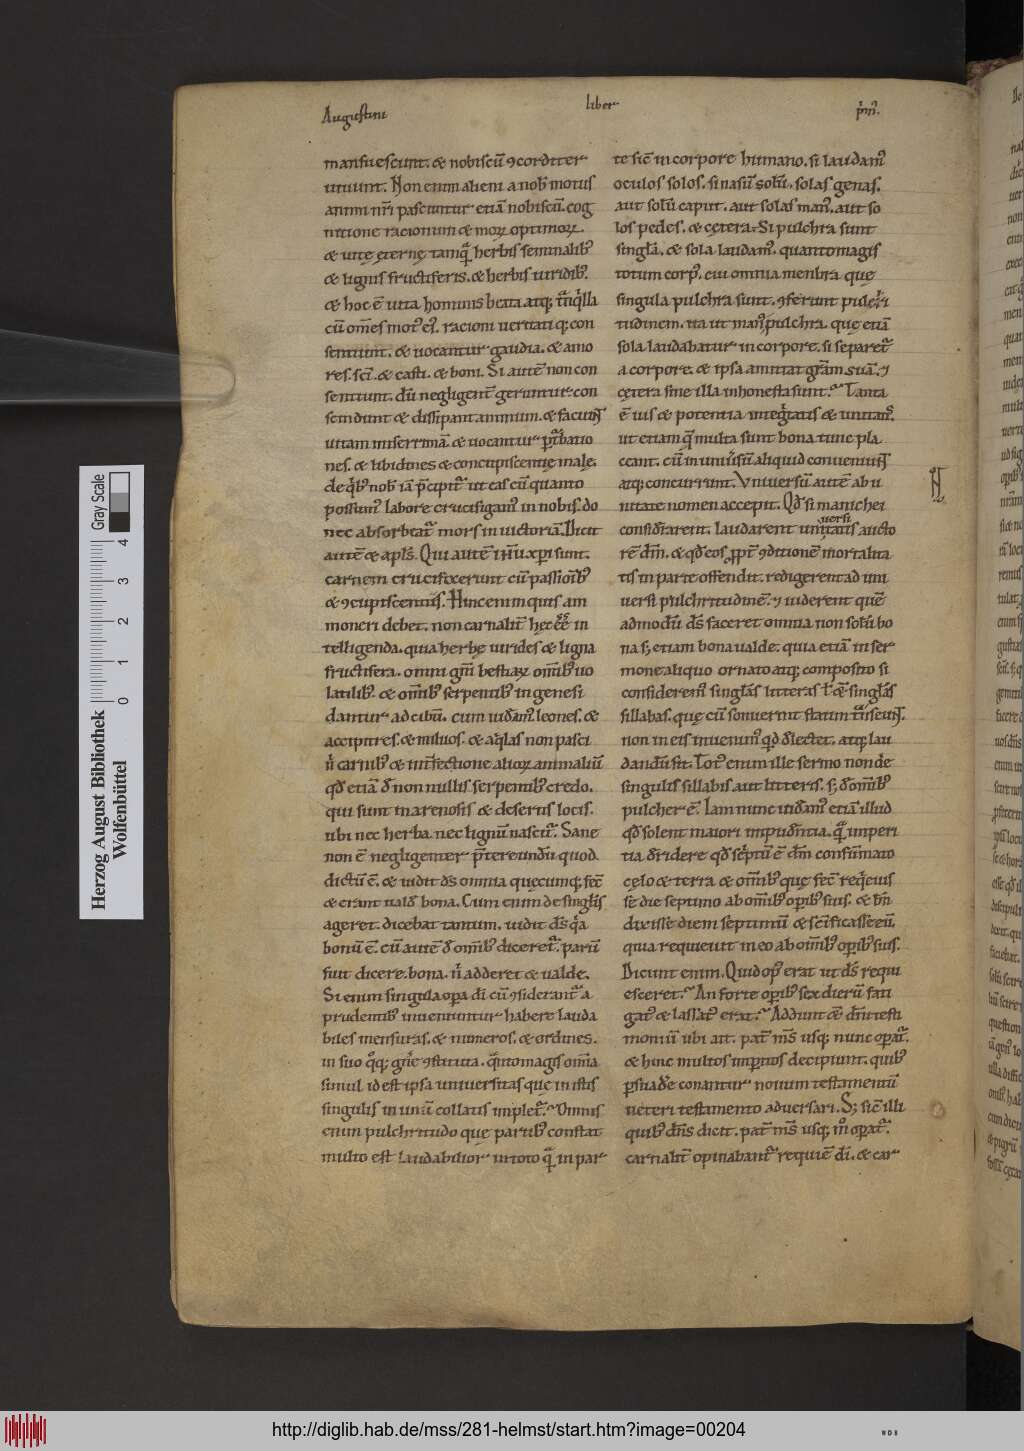 Augustini liber pⁱm᷒.
mansuescunt. & nobiscū ꝯcorditer
uiuunt. Non enim alieni a nob᷒ motus
animi nr̄i pascuntur etiā nobiscū. cog
nitione racionum & moꝝ optimoꝝ.
& uitę ęternę tamquā herbis seminalib᷒
& lignis fructiferis. & herbis uiridib᷒.
& hoc ē uita hominis beata atq; tⁿqⁱlla
cū om̄es mot᷒ ei᷒. racioni ueritatiq; con
sentiunt. & uocantur gaudia. & amo
res. sc̄i. & casti. & boni. Si autē non con
sentiunt. dū negligent̄ geruntur. con
scindunt & dissipant animum. & faciunt
uitam miserrimā. & uocantur pturbatio
nes. & libidines & concupiscentię malę.
de qⁱb᷒ nob᷒ iā p̄cipit᷑ ut eas cū quanto
possum᷒ labore crucifigam᷒ in nobis. do
nec absorbeat᷑ mors in uictoriā. Dicit
autē & apl̄s. Qui autē ihū xp̄i sunt.
carnem crucifixerunt cū passionib᷒
& ꝯcupiscentiis. Hinc enim quis am
moneri debet. non carnalit̄ hęc ēē in
telligenda. quia herbę uirides & ligna
fructifera. omni gn̄i bestiaꝝ om̄ib᷒ uo
latilib᷒. & om̄ib᷒ serpentib᷒ in genesi
dantur ad cibū. cum uidam᷒ leones. &
accipitres. & miluos. & aqⁱlas non pasci
nⁱ carnib᷒ & int̄fectione alioꝝ animaliū
qd̄ etiā d̄ non nullis serpentib᷒ credo.
qui sunt in arenosis & desertis locis.
ubi nec herba nec lignū nascit᷑. Sane
non ē negligenter p̄tereundū quod
dictū ē. & uidit ds̄ omnia quęcumq; fec̄
& erant uald̄ bona. Cum enim de singl̄is
ageret. dicebat tantum. uidit ds̄ qⁱa
bonū ē. cū autē d̄ om̄ib᷒ diceret᷑. parū
fuit dicere. bona. nⁱ adderet & ualde.
Si enim singula opa dī cū ꝯsiderant᷑ a
prudentib᷒ inueniuntur habere lauda
biles mensuras. & numeros. & ordines.
in suo qͦq; gn̄e ꝯstituta. qⁿtomagis om̄ia
simul id est ipsa uniuersitas quę in istis
singulis in unū collatis implet᷑. Omnis
enim pulchritudo quę partib᷒ constat
multo est laudabilior in toto qᵃ in par
te sic̄ in corpore humano. si laudam᷒
oculos solos. si nasū solū. solas genas.
aut solū caput. aut solas man᷒. aut so
los pedes. & cętera. Si pulchra sunt
singl̄a. & sola laudam᷒. quantomagis
totum corp᷒. cui omnia menbra quę
singula pulchra sunt. ꝯferunt pulcri
tudinem. ita ut man᷒ pulchra. quę etiā
sola laudabatur in corpore. si separet᷑
a corpore. & ipsa amittat grām suā. ⁊
cętera sine illa inhonesta sunt. Tanta
ē uis & potentia integⁱtatis & unitatis.
ut etiam quę multa sunt bona tunc pla
ceant. cū in uniuⁱsū aliquid conueniunt
atq; concurrunt. Vniuersū autē ab u
nitate nomen accepit. Qd̄ si manichei
considerarent. laudarent uniuersitatis aucto
rē dm̄. & qd̄ eos ꝓpt̄ ꝯditionē mortalita
tis in parte offendit. redigerent ad uni
uersi pulchritudinē. ⁊ uiderent quē
admodū ds̄ faceret omnia non solū bo
na s; etiam bona ualde. quia etiā in ser
mone aliquo ornato atq; composito si
considerem᷒ singl̄as litteras ł & singl̄as
sillabas. quę cū sonuerint statim tⁿnseunt.
non in eis inuenim᷒ qd̄ delectet. atq; lau
dandū sit. Tot᷒ enim ille sermo non de
singulis sillabis aut litteris. s; d̄ om̄ib᷒
pulcher ē. Iam nunc uidam᷒ etiā illud
qd̄ solent maiori impudentia. quā imperi
tia deridere qd̄ scⁱptū ē dm̄ consum̄mato
cęlo & terra & om̄ib᷒ quę fec̄ reqⁱeuis
se die septimo ab om̄ib᷒ opib᷒ suis. & bn̄
dixisse diem septimū & sc̄ificasse eū.
quia requieuit in eo ab om̄ib᷒ opib᷒ suis.
Dicunt enim. Quid op᷒ erat ut ds̄ requi
esceret. An forte opib᷒ sex dierū fati
gat᷒ & lassat᷒ erat. Addunt & dn̄i testi
moniū ubi ait. pat̄ ms̄ usq; nunc opat᷑.
& hinc multos inpitos decipiunt. quib᷒
psuadere conantur nouum testamentū
ueteri testamento aduersari. S; sic̄ illi
quib᷒ dn̄s dicit. pat̄ ms̄ usq; mͦ opat᷑.
carnalit̄ opinabant᷑ requiē dī. & car
Herzog August Bibliothek
Wolfenbüttel
0 1 2 3 4
Gray Scale
http://diglib.hab.de/mss/281-helmst/start.htm?image=00204